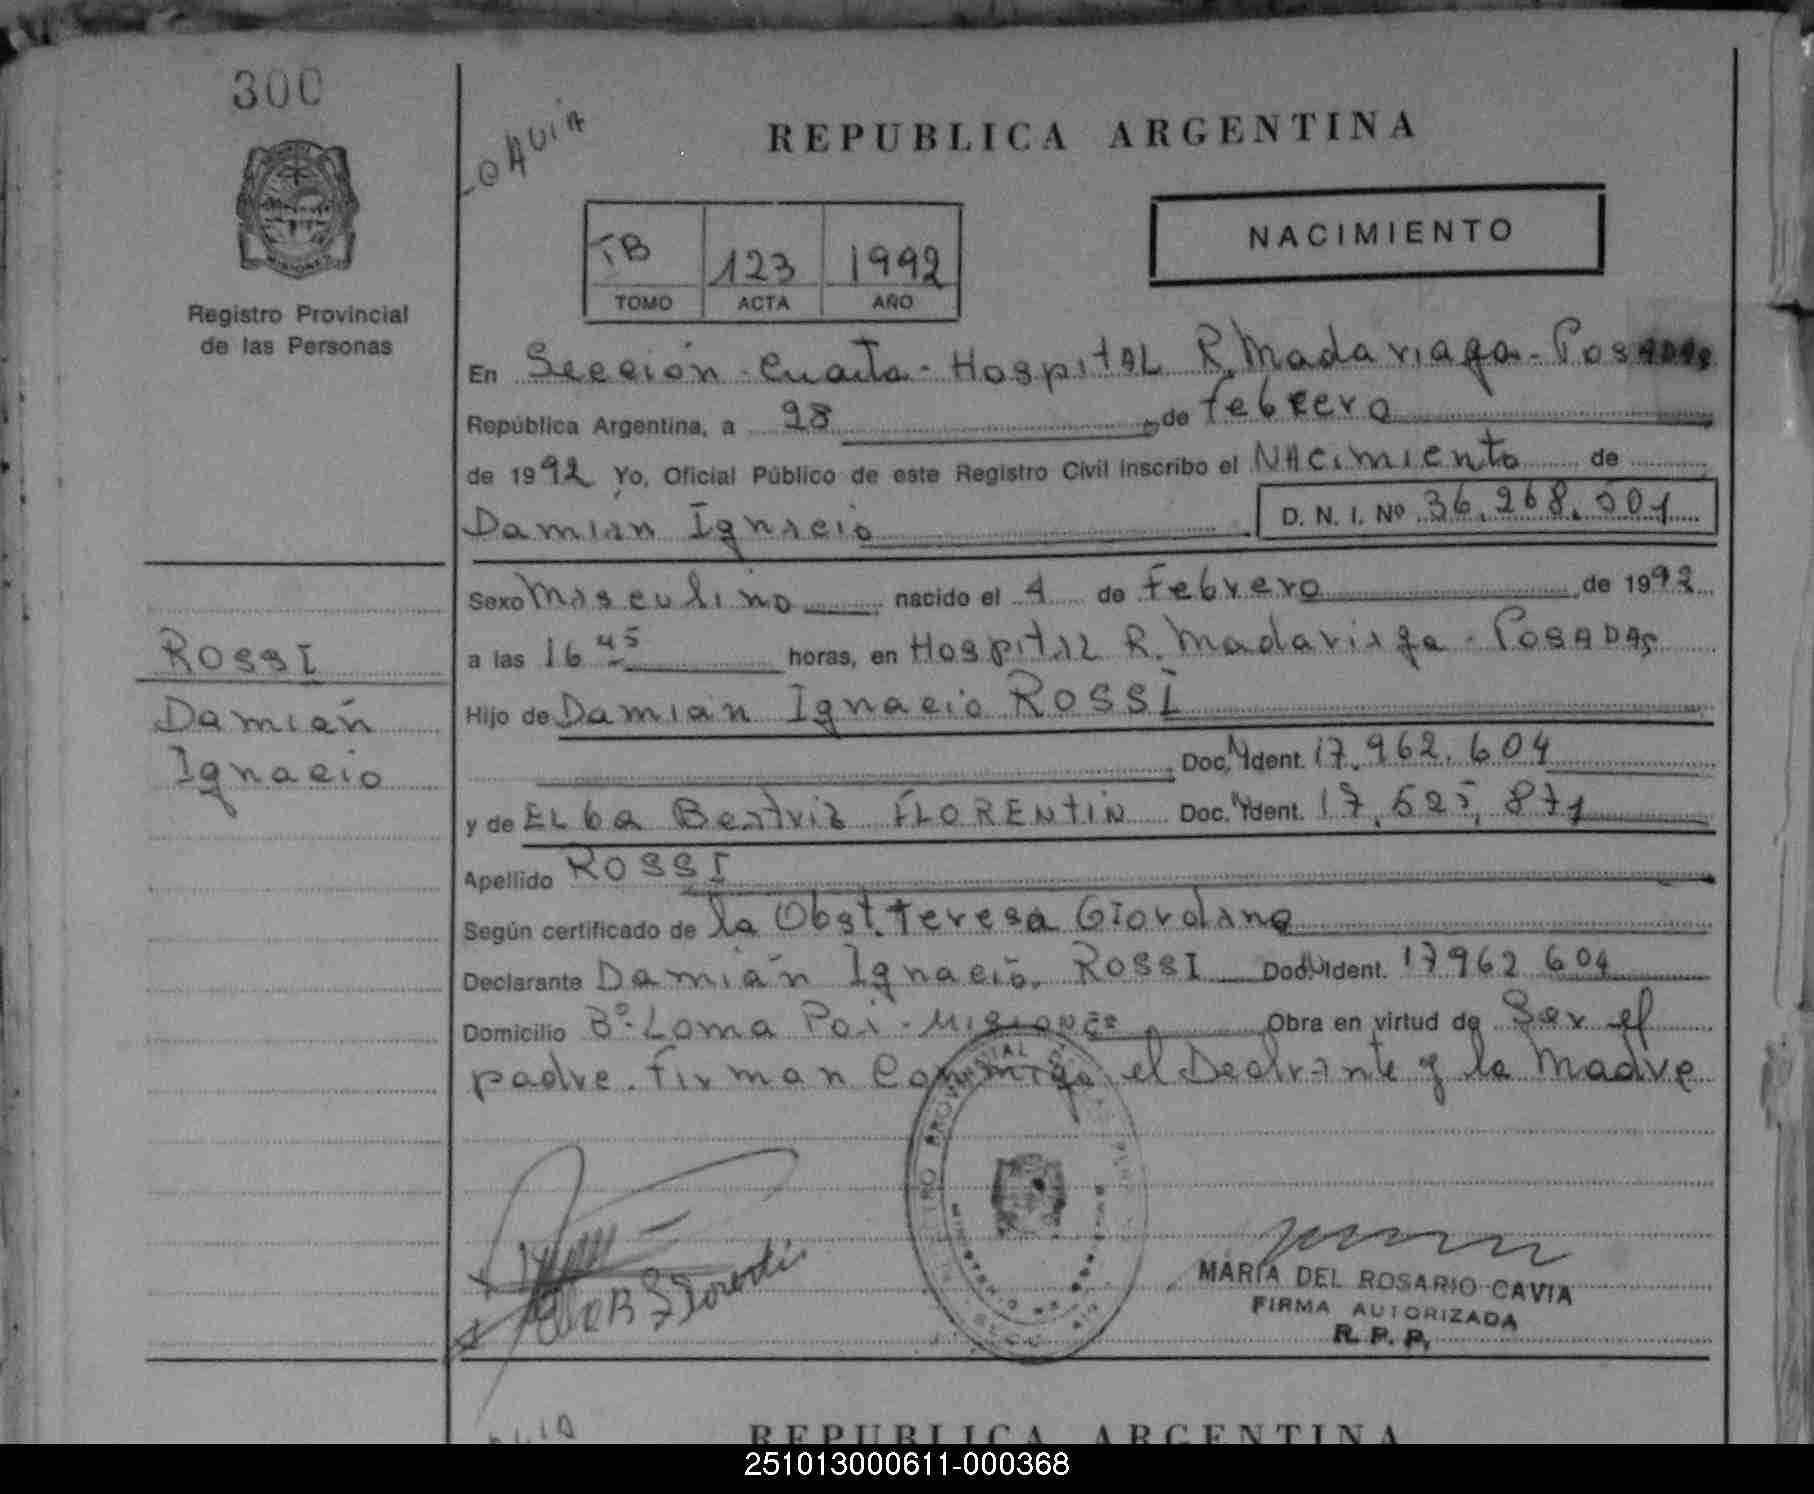 300
REPUBLICA ARGENTINA
NACIMIENTO
TB 123 1992
TOMO ACTA AÑO
Registro Provincial
de las Personas
En Sección Cuarta - Hospital R. Madariaga - Posadas
República Argentina, a 28 de febrero
de 1992 Yo, Oficial Público de este Registro Civil inscribo el Nacimiento de
Damián Ignacio D. N. I. Nº 36.268.501
Sexo Masculino nacido el 4 de Febrero de 1992
a las 16 45 horas, en Hospital R. Madariaga - Posadas
ROSSI
Damián
Ignacio
Hijo de Damián Ignacio ROSSI
Doc. Ident. 17.962.604
y de Elba Beatriz FLORENTIN Doc. Ident. 17.525.871
Apellido ROSSI
Según certificado de la Obst. Teresa Giordano
Declarante Damián Ignacio ROSSI Doc. Ident. 17962 604
Domicilio Bº-Loma Poi - Misiones Obra en virtud de Ser el
padre. Firman Conmigo el Declarante y la Madre
MARIA DEL ROSARIO CAVIA
FIRMA AUTORIZADA
R. P. P.
REPUBLICA ARGENTINA
251013000611-000368